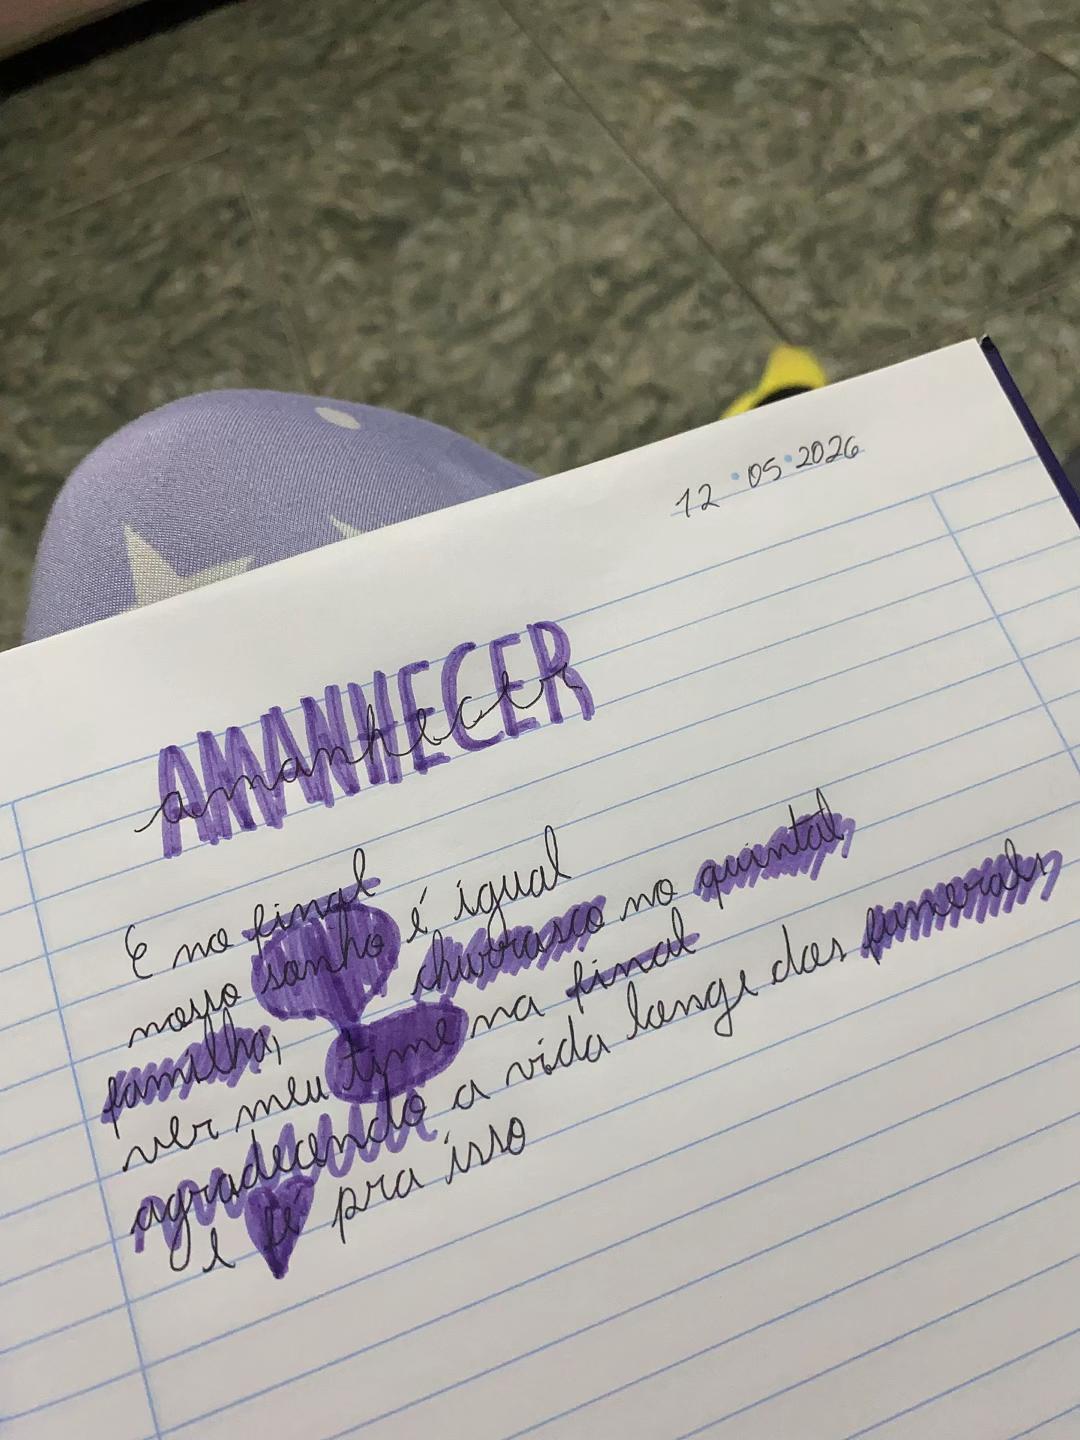 12.05.2026
AMANHECER
amanhecer
E no final
nosso sonho é igual
família, churrasco no quintal
ver meu time na final
agradecendo a vida longe dos funerais
e fé pra isso